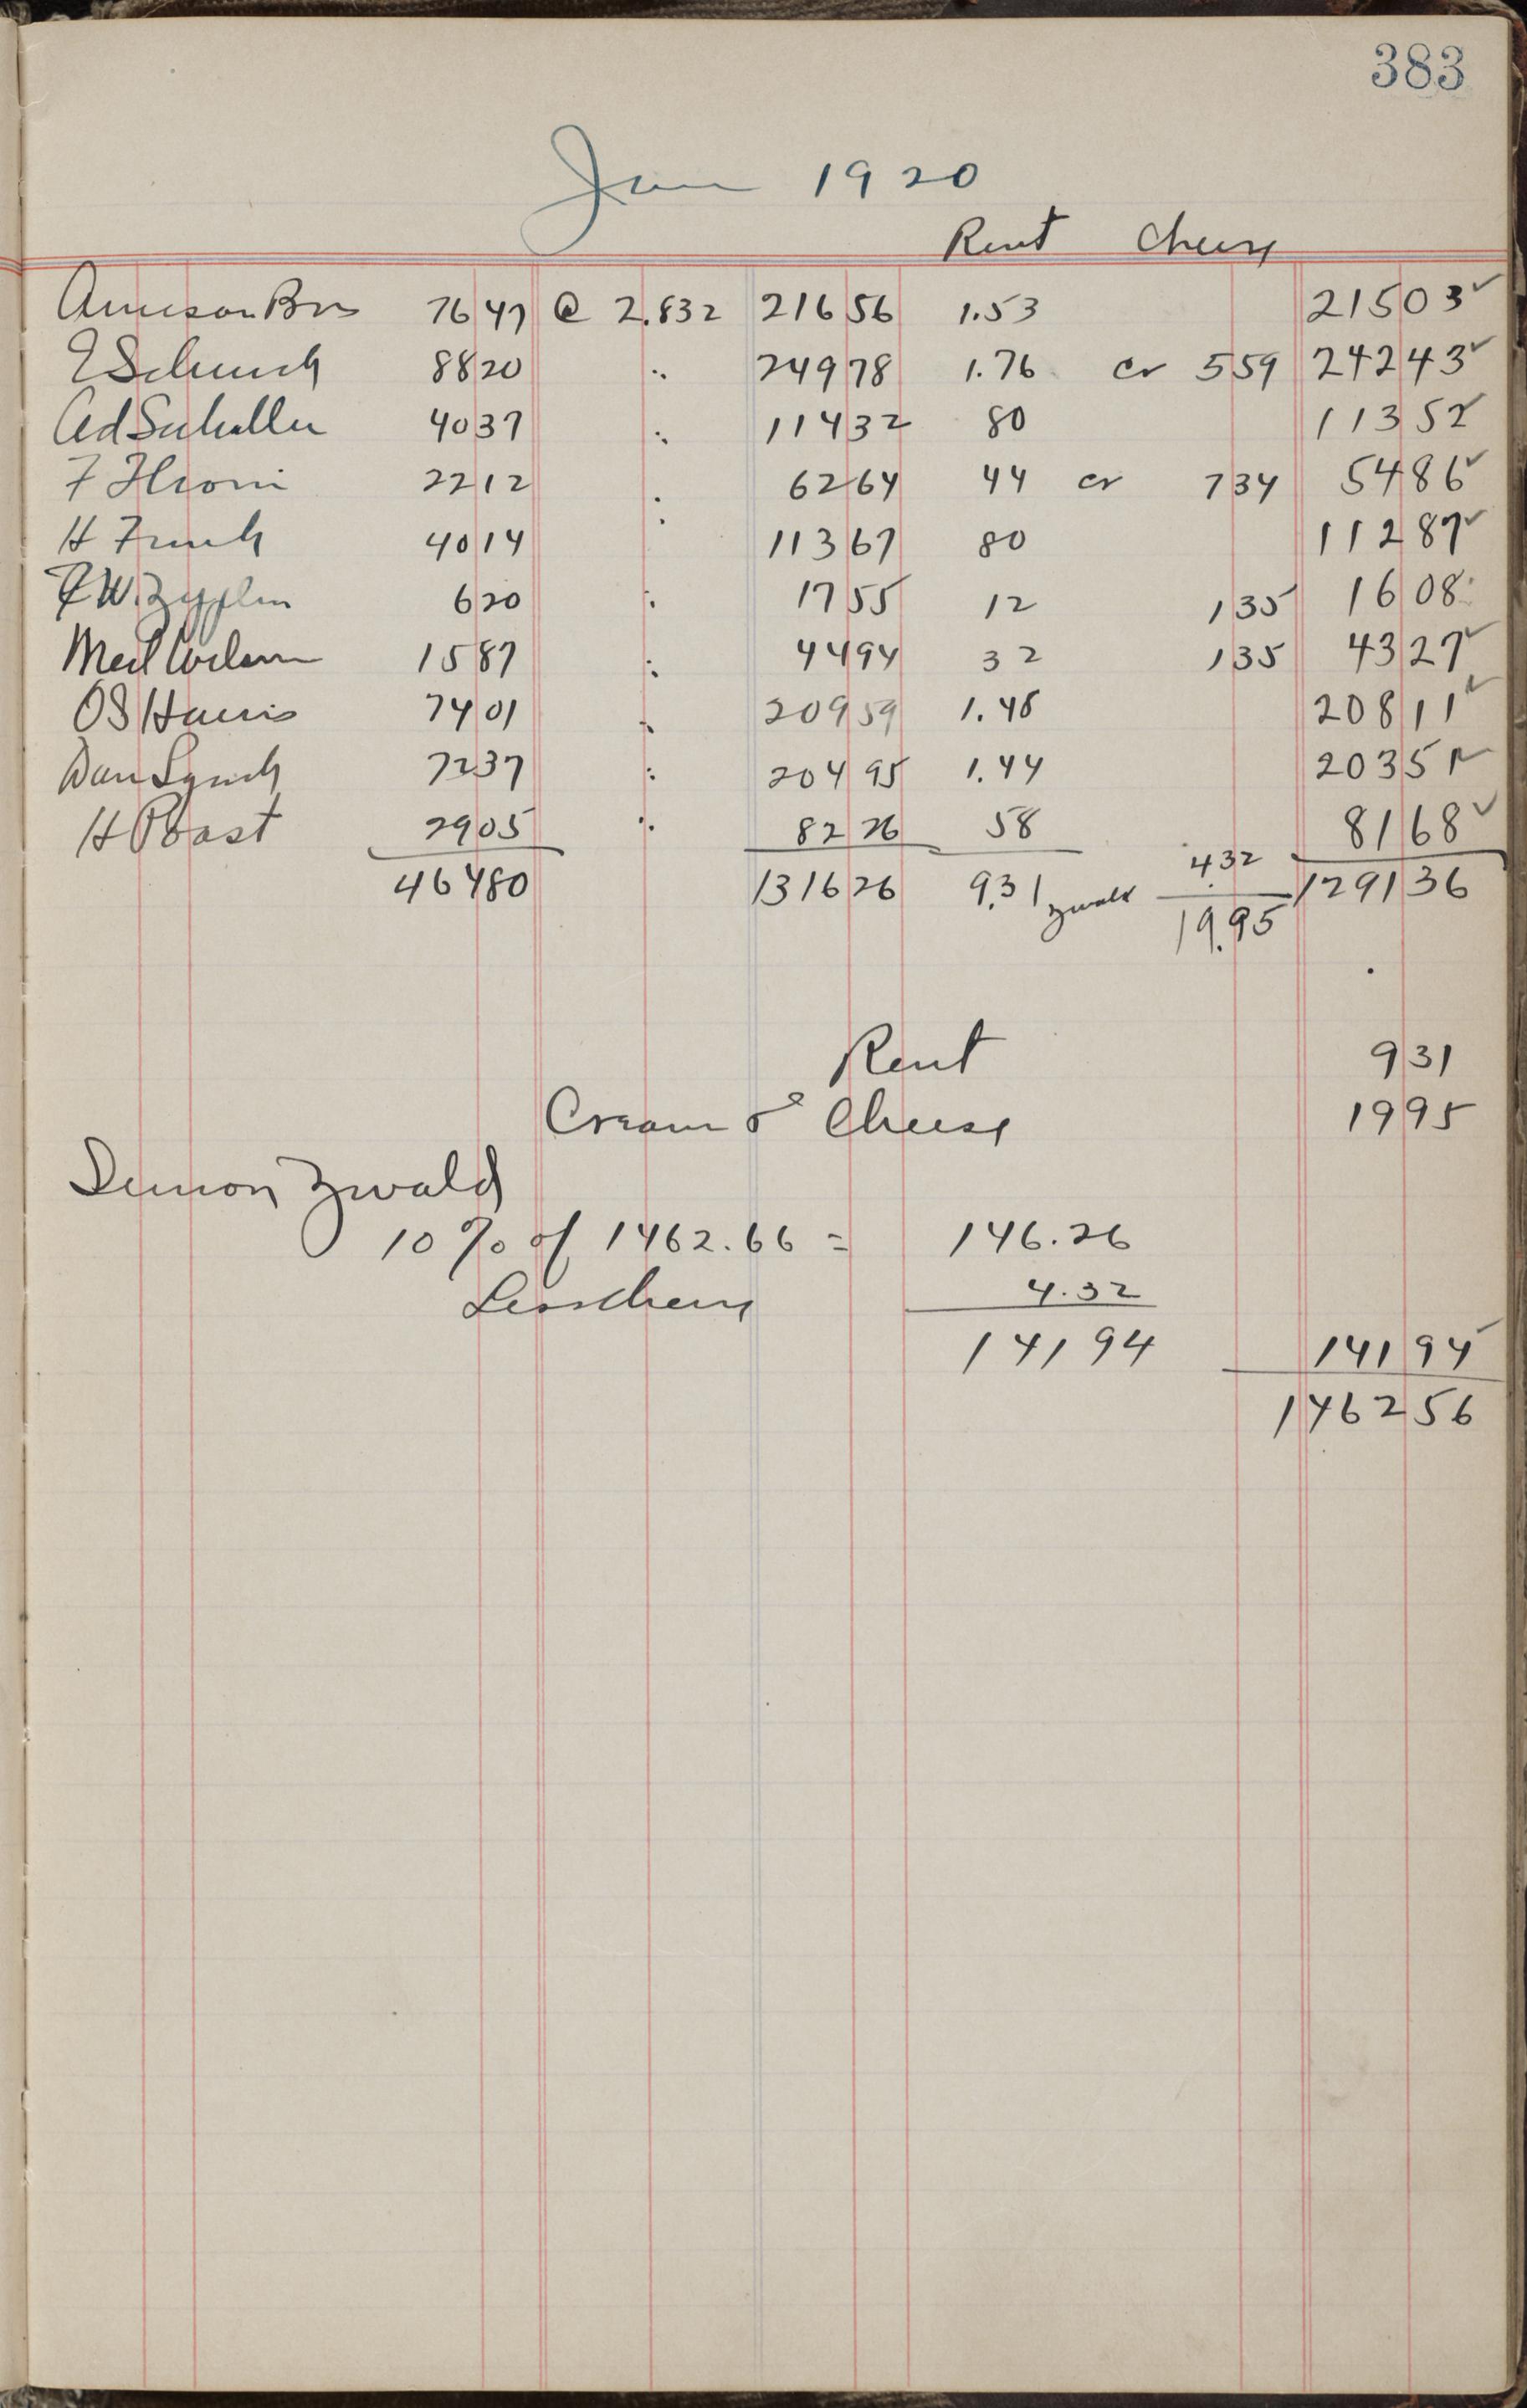 383
Jan 1920
Rent Cheese
Arneson Bros 7647 @ 2.832 21656 1.53 21503 ✓
E Schunck 8820 " 24978 1.76 cr 559 24243 ✓
Ad Sehaller 4037 " 11432 80 11352 ✓
F 2212 " 6264 44 cr 734 5486 ✓
H Funck 4014 " 11367 80 11287 ✓
F W. Zypplin 620 " 1755 12 135 1608
Wilson 1587 " 4494 32 135 4327 ✓
OS Harris 7401 " 20959 1.48 20811 ✓
Dan Lynch 7237 " 20495 1.44 20351 ✓
H Poast 2905 " 8226 58 8168 ✓
46480 131626 9.31 Zwald 4.32 129136
19.95
Rent 931
Cream & Cheese 1995
Simon Zwald
10 % of 1462.66 = 146.26
Less Cheese 4.32
14194 14194 ✓
146256